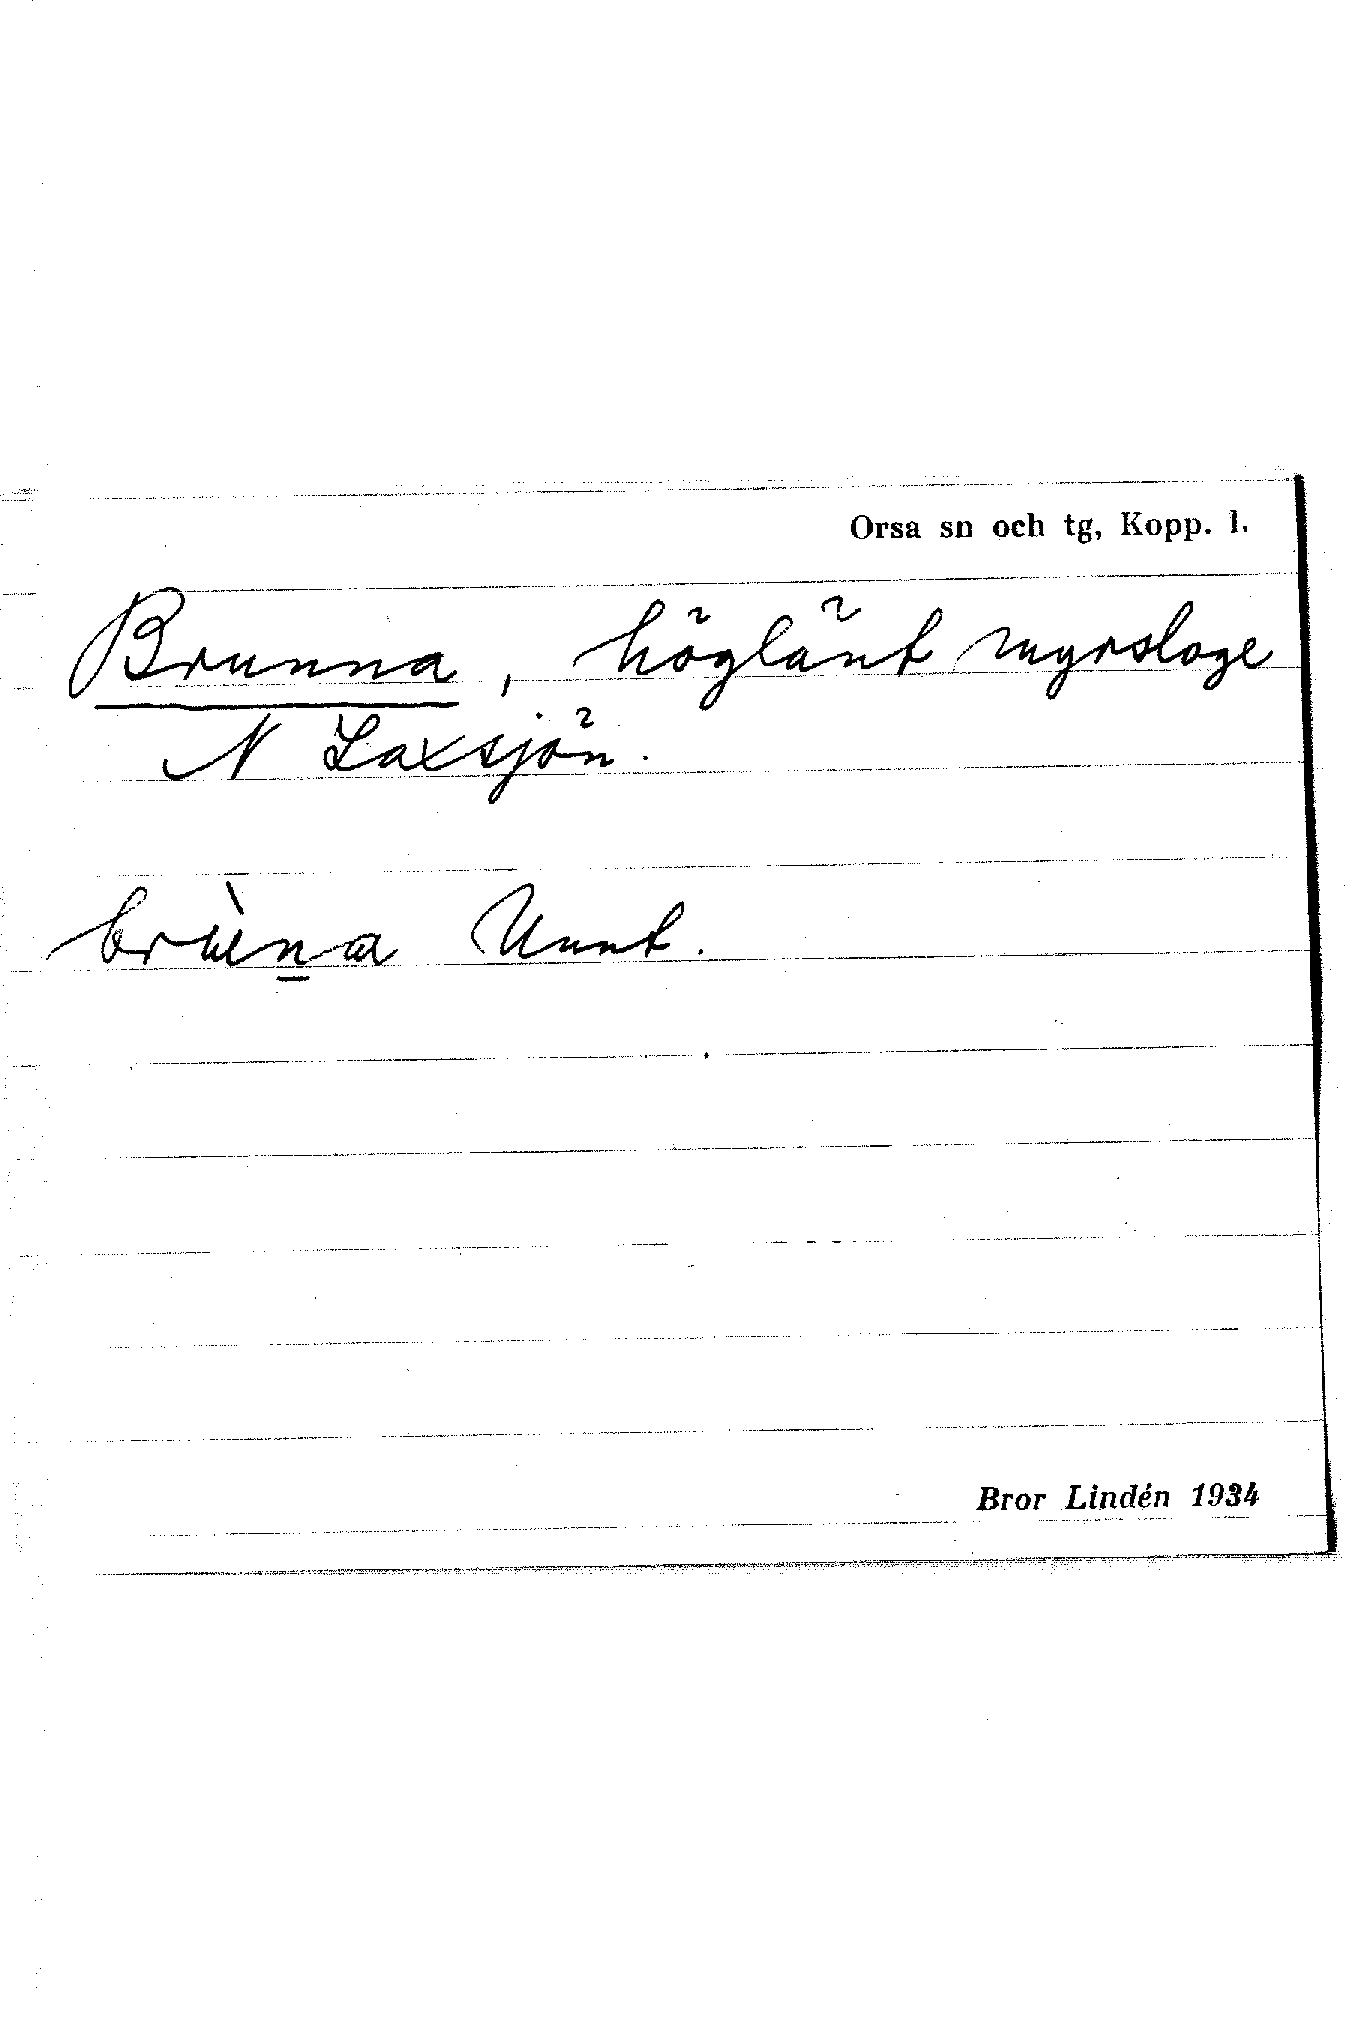 Orsa sn och tg, Kopp. l.
Brunna, höglänt myrsloge
N Laxsjön.
brùna Unnt.
Bror Lindén 1934